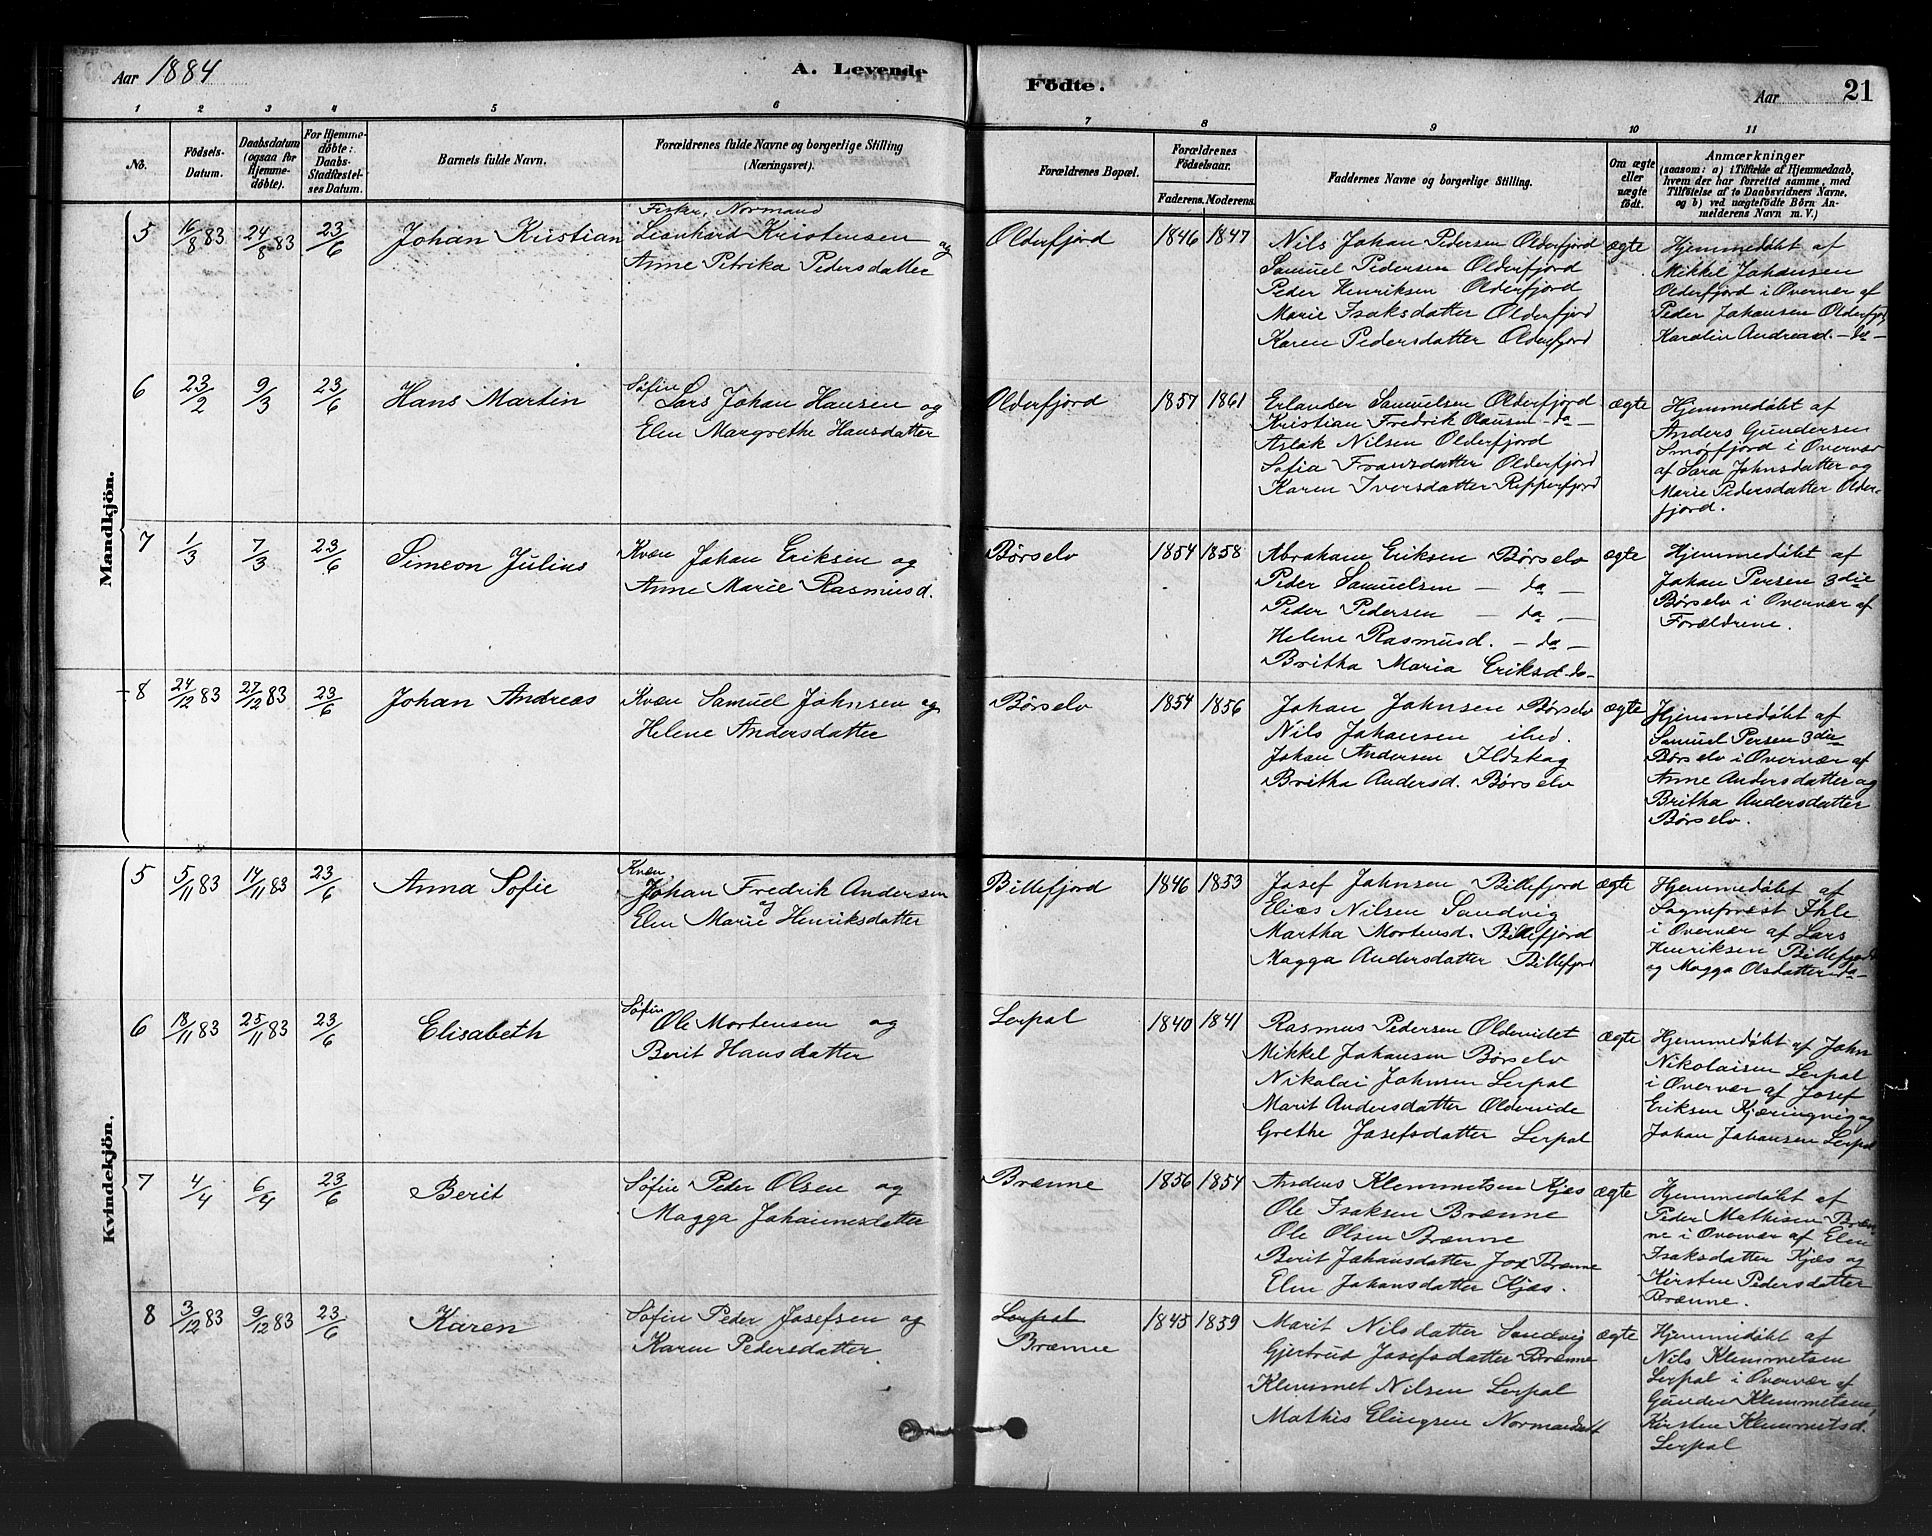 Aar 1884
A. Levende
Fødte.
Aar
21
1 2 3 4 5 6 7 8 9 10 11
No.
Fødsels-
Datum.
Daabsdatum
(ogsaa for
Hjemme-
døbte).
For Hjemme-
døbte:
Daabs-
Stadfæstel-
ses Datum.
Barnets fulde Navn.
Forældrenes fulde Navne og borgerlige Stilling
(Næringsvei).
Forældrenes Bopæl.
Forældrenes
Fødselsaar.
Faderens. Moderens.
Faddernes Navne og borgerlige Stilling.
Om ægte
eller
uægte
født.
Anmærkninger
(saasom: a) i Tilfælde af Hjemmedaab,
hvem der har forrettet samme, med
Tilføielse af to Daabsvidners Navne,
og b) ved uægtefødte Børn An-
melderens Navn m. V.)
Mandkjön.
5 16/8 83 24/8 83 23/6 Johan Kristian
Fisker, Normand
Leonhard Kristensen og
Anne Petrika Pedersdatter
Olderfjord 1846 1847
Nils Johan Pedersen Olderfjord
Samuel Pedersen Olderfjord
Peder Henriksen Olderfjord
Marie Isaksdatter Olderfjord
Karen Pedersdatter Olderfjord
ægte
Hjemmedøbt af
Mikkel Johansen
Olderfjord i Overvær af
Peder Johansen Olderfjord
Karolin Andreasd. - do -
6 23/2 9/3 23/6 Hans Martin
Søfin Lars Johan Hansen og
Elen Margrethe Hansdatter
Olderfjord 1857 1861
Erlander Samuelsen Olderfjord
Kristian Fredrik Olausen - do -
Aslak Nilsen Olderfjord
Sofia Fransdatter Olderfjord
Karen Iversdatter Repperfjord
ægte
Hjemmedøbt af
Anders Gundersen
Smørfjord i Overvær
af Sara Johnsdatter og
Marie Pedersdatter Older-
fjord.
7 1/3 7/3 23/6 Simeon Julius
Kvæn Johan Eriksen og
Anne Marie Rasmusd.
Børselv 1854 1858
Abraham Eriksen Børselv
Peder Samuelsen - do -
Peder Pedersen - do -
Helene Rasmusd. - do -
Britha Maria Eriksd - do -
ægte
Hjemmedøbt af
Johan Persen 3die
Børselv i Overvær af
Forældrene.
8 24/12 83 27/12 83 23/6 Johan Andreas
Kvæn Samuel Johnsen og
Helene Andersdatter
Børselv 1854 1856
Johan Johnsen Børselv
Nils Johansen ibid.
Johan Andersen Ildskog
Britha Andersd. Børselv
ægte
Hjemmedøbt af
Samuel Persen 3die
Børselv i Overvær af
Anne Andersdatter og
Britha Andersdatter
Børselv.
Kvindekjön.
5 5/11 83 14/11 83 23/6 Anna Sofie
Kvæn
Johan Fredrik Andersen
og
Elen Marie Henriksdatter
Billefjord 1846 1853
Josef Johnsen Billefjord
Elias Nilsen Sandvig
Martha Mortensd. Billefjord
Magga Andersdatter Billefjord
ægte
Hjemmedøbt af
Sognepræst Ihle
i Overvær af Lars
Henriksen Billefjord
og Magga Olsdatter - do -
6 18/11 83 25/11 83 23/6 Elisabeth
Søfin
Ole Mortensen og
Berit Hansdatter
Lerpol 1840 1841
Rasmus Pedersen Oldervidet
Mikkel Johansen Børselv
Nikolai Johnsen Lerpol
Marit Andersdatter Oldervide
Grethe Josefsdatter Lerpol
ægte
Hjemmedøbt af John
Nikolaisen Lerpol
i Overvær af Josef
Eriksen Kjæringvig og
Johan Johansen Lerpol
7 4/4 6/4 23/6 Berit
Søfin Peder Olsen og
Magga Johannesdatter
Brænne 1856 1854
Anders Klemmetsen Kjæs
Ole Isaksen Brænne
Ole Olsen Brænne
Berit Johansdatter Jox Brænne
Elen Johansdatter Kjæs.
ægte
Hjemmedøbt af
Peder Mathisen Bræn-
ne i Overvær af Elen
Isaksdatter Kjæs og
Kirsten Pedersdatter
Brænne.
8 3/12 83 9/12 83 23/6 Karen
Søfin Peder Josefsen og
Karen Pedersdatter
Lerpol
Brænne 1845 1859
Marit Nilsdatter Sandvig
Gjertrud Josefsdatter Brænne
Klemmet Nilsen Lerpol
Mathis Elingsen Normandset
ægte
Hjemmedøbt af
Nils Klemmetsen
Lerpol i Overvær af
Gunder Klemmetsen,
Kirsten Klemmetsd.
Lerpol